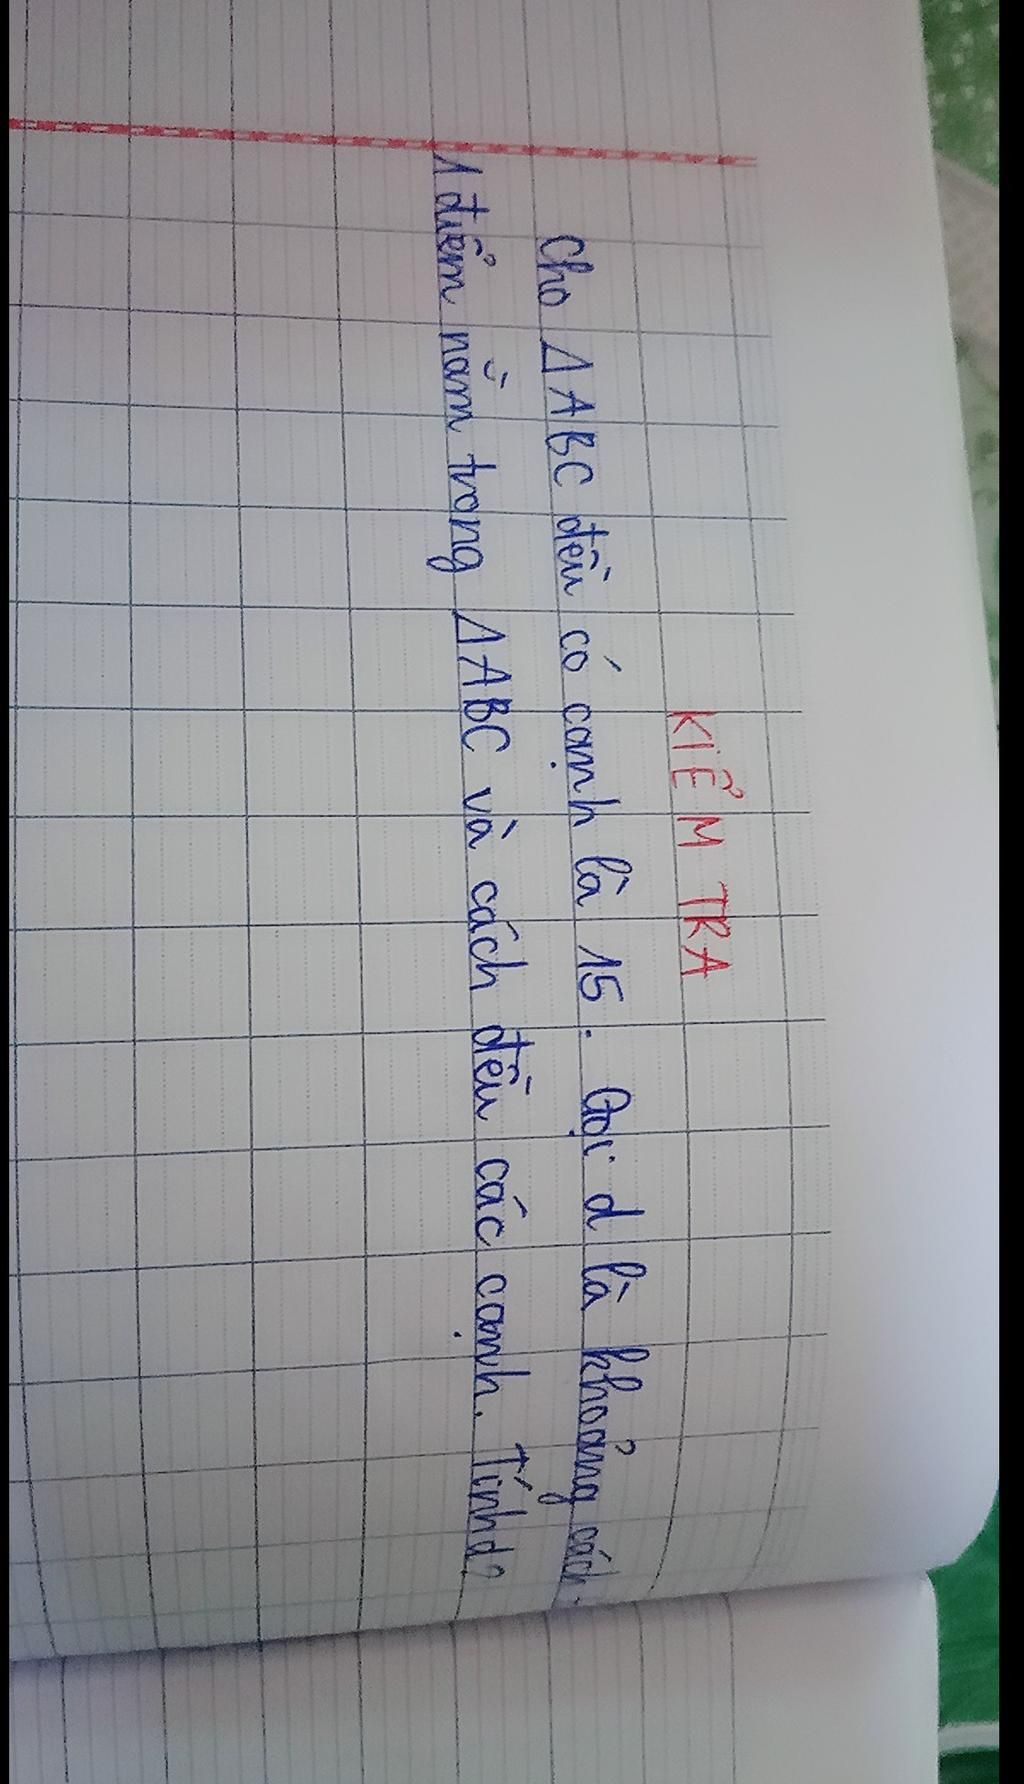 KIỂM TRA
Cho ΔABC đều có cạnh là 15. Gọi d là khoảng cách
1 điểm nằm trong ΔABC và cách đều các cạnh. Tính d?